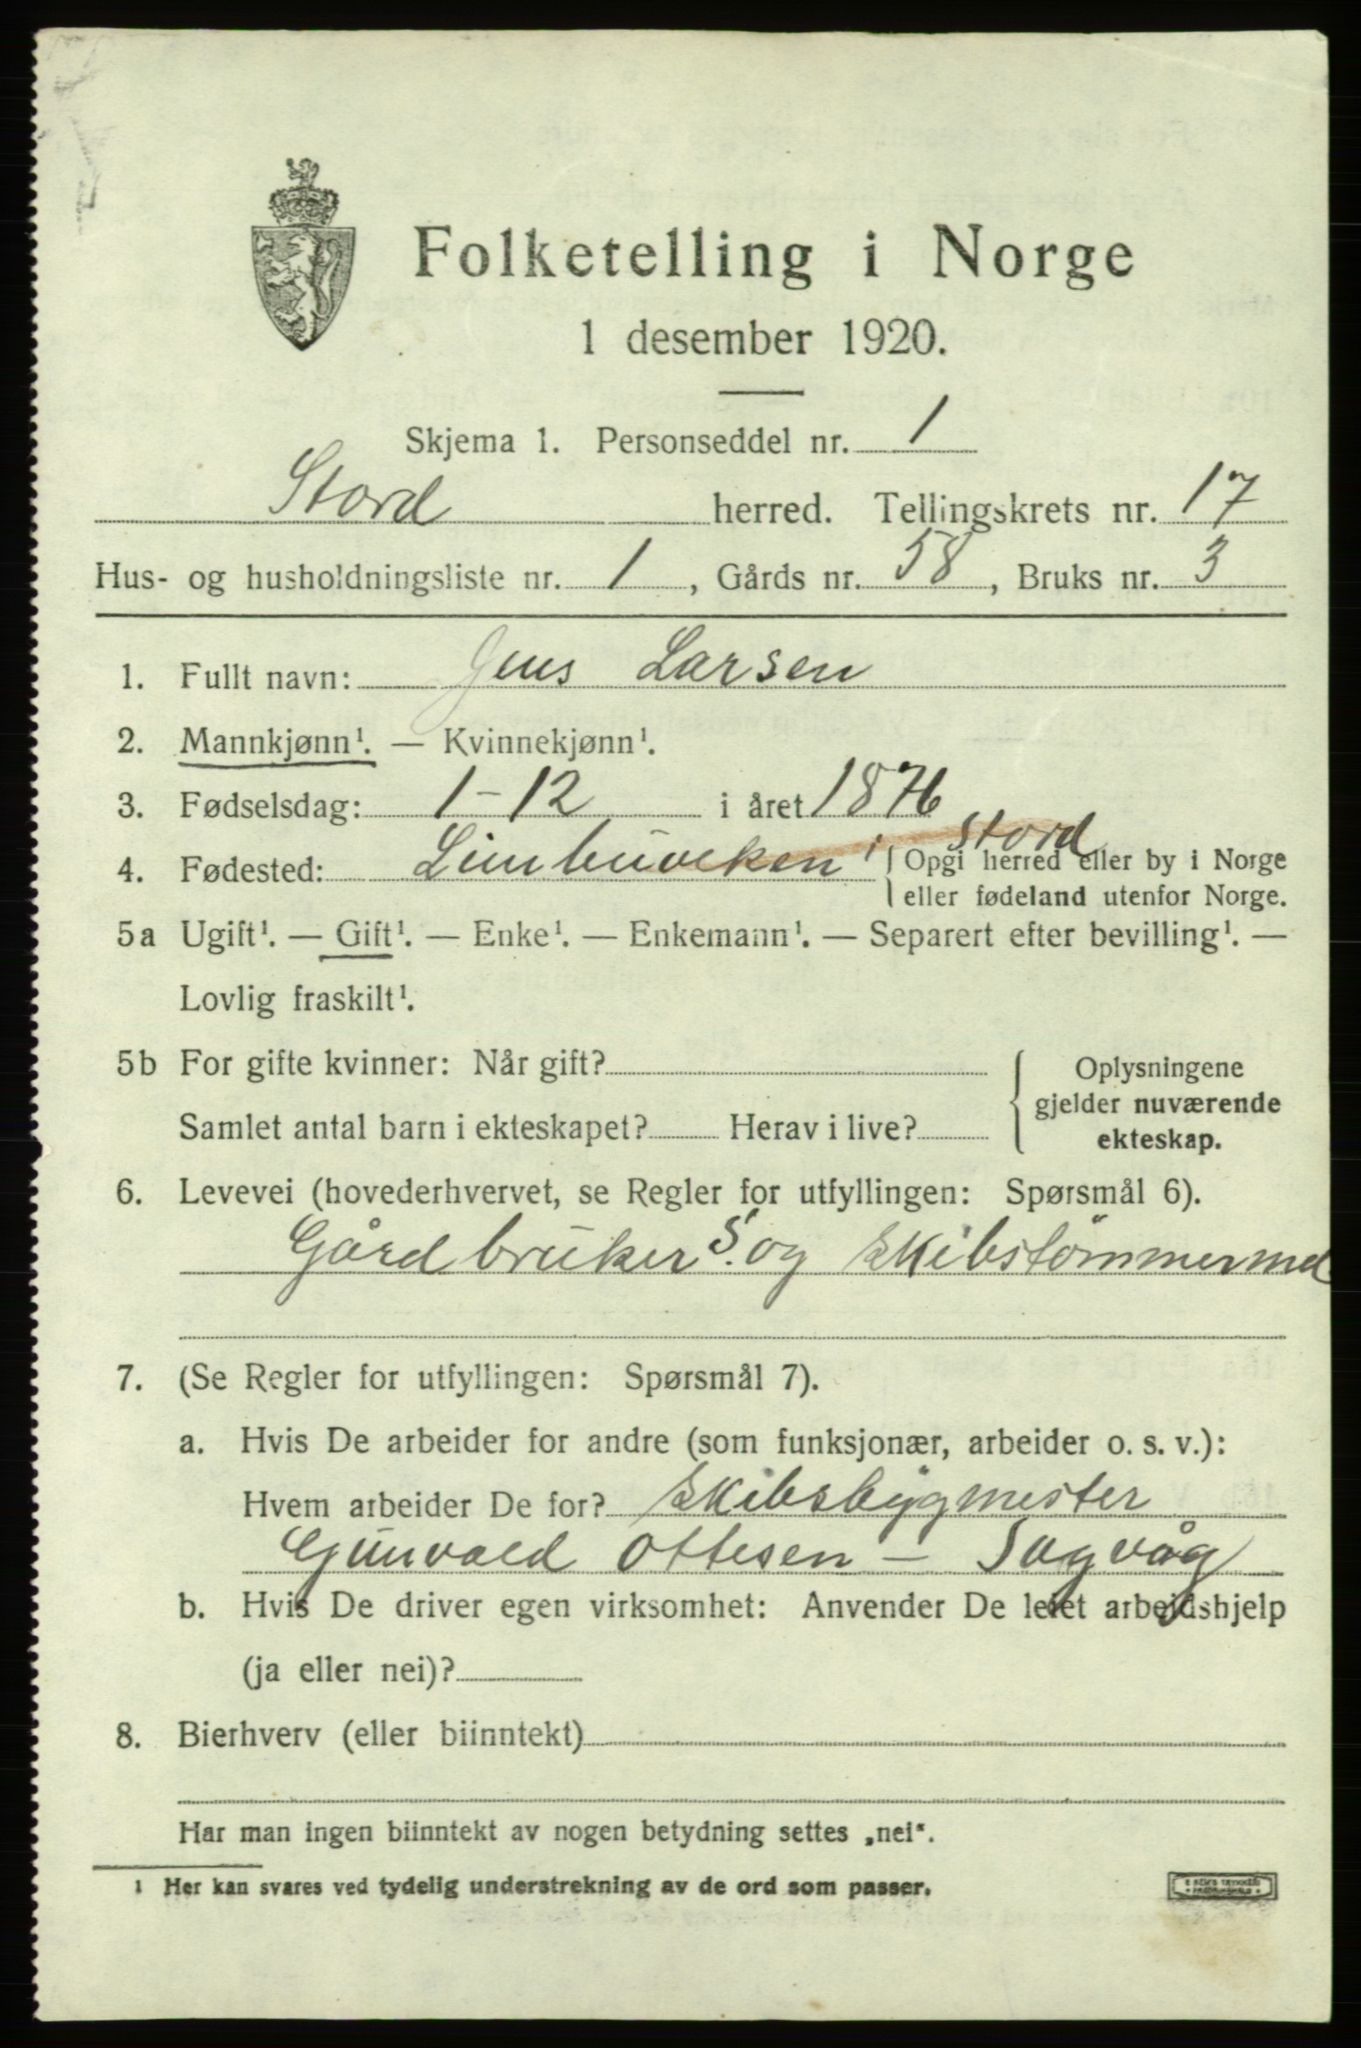 Folketelling i Norge
1 desember 1920.
Skjema 1. Personseddel nr. 1
Stord herred. Tellingskrets nr. 17
Hus- og husholdningsliste nr. 1, Gårds nr. 58, Bruks nr. 3
1. Fullt navn: Jens Larsen
2. Mannkjønn¹. — Kvinnekjønn¹.
3. Fødselsdag: 1-12 i året 1876
4. Fødested: Limbuviken i Stord
{ Opgi herred eller by i Norge
eller fødeland utenfor Norge.
5a Ugift¹. — Gift¹. — Enke¹. — Enkemann¹. — Separert efter bevilling¹. —
Lovlig fraskilt¹.
5b For gifte kvinner: Når gift?
Samlet antal barn i ekteskapet? Herav i live?
{ Oplysningene
gjelder nuværende
ekteskap.
6. Levevei (hovederhvervet, se Regler for utfyllingen: Spørsmål 6).
Gårdbruker S. og skibstömmermd
7. (Se Regler for utfyllingen: Spørsmål 7).
a. Hvis De arbeider for andre (som funksjonær, arbeider o. s. v.):
Hvem arbeider De for? Skibsbygmester
Gunvald Ottesen — Sagvåg
b. Hvis De driver egen virksomhet: Anvender De leiet arbejdshjelp
(ja eller nei)?
8. Bierhverv (eller biinntekt)
Har man ingen biinntekt av nogen betydning settes „nei“.
1 Her kan svares ved tydelig understrekning av de ord som passer.